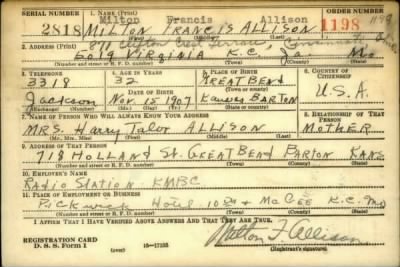 SERIAL NUMBER 1. NAME (Print) ORDER NUMBER
Milton Francis Allison 1198
2818 MILTON FRANCIS ALLISON 1198
(First) (Middle) (Last)
2. ADDRESS (Print)
871 Clifton Crest Terrace, Cincinnati
6019 VIRGINIA K.C. Ja. Mo
(Number and street or R. F. D. number) (Town) (County) (State)
3. TELEPHONE 4. AGE IN YEARS 5. PLACE OF BIRTH 6. COUNTRY OF CITIZENSHIP
3318 32 GREAT BEND
DATE OF BIRTH
Jackson Nov. 15 1907 Kansas BARTON U.S.A.
(Exchange) (Mo.) (Day) (Yr.) (State or country)
7. NAME OF PERSON WHO WILL ALWAYS KNOW YOUR ADDRESS 8. RELATIONSHIP OF THAT PERSON
MRS. Harry Talor ALLISON MOTHER
(Mr., Mrs., Miss) (First) (Middle) (Last)
9. ADDRESS OF THAT PERSON
718 HOLLAND St. GREAT BEND BARTON KANS
(Number and street or R. F. D. number) (Town) (County) (State)
10. EMPLOYER'S NAME
RADIO STATION KMBC
11. PLACE OF EMPLOYMENT OR BUSINESS
Pickwick Hotel 10th & McGEE K.C. Mo
(Number and street or R. F. D. number) (Town) (County) (State)
I AFFIRM THAT I HAVE VERIFIED ABOVE ANSWERS AND THAT THEY ARE TRUE.
REGISTRATION CARD
D. S. S. Form 1 16—17105 Milton F Allison
(Registrant's signature)